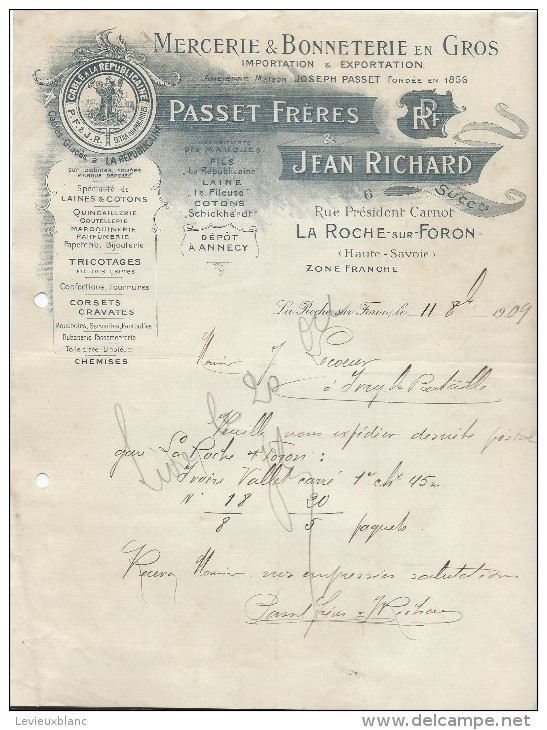 MERCERIE & BONNETERIE EN GROS
IMPORTATION & EXPORTATION
ANCIENNE MAISON JOSEPH PASSET FONDÉE EN 1856
PASSET FRÈRES
&
JEAN RICHARD
SUCCrs
PRF
CABLÉ A LA RÉPUBLICAINE
P.F. & J.R.
Cablés Glacés à LA RÉPUBLICAINE
sur bobines, fusées
MARQUE DÉPOSÉE
Spécialité de
LAINES & COTONS
QUINCAILLERIE
COUTELLERIE
MAROQUINERIE
PARFUMERIE
Papeterie, Bijouterie
TRICOTAGES
EN TOUS GENRES
Confections, Fourrures
CORSETS
CRAVATES
Mouchoirs, Serviettes, Pantoufles
Rubanerie Passementerie
CHEMISES
DES MARQUES
FILS
"La Républicaine"
LAINE
"la Fileuse"
COTONS
"Schickhardt"
DÉPÔT
A ANNECY
6
Rue Président Carnot
LA ROCHE-SUR-FORON
(Haute-Savoie)
ZONE FRANCHE
La Roche-sur-Foron, le 11 8b 1909
Monsieur J. Lecoeur
à Ivry la Bataille
Veuillez nous expédier de suite postal
gare La Roche s/ Foron :
Ivoire Vallet carré 1er chx 45m
N° 18 20
8 5 paquets
Recevez Monsieur nos empressées salutations
Passet frères & J Richard
Levieuxblanc
www.delcampe.net